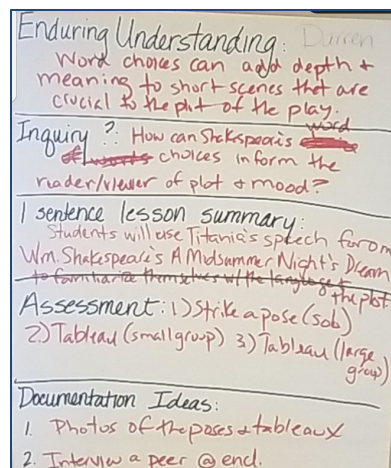 Enduring Understanding: Darren
Word choices can add depth &
meaning to short scenes that are
crucial to the plot of the play.
Inquiry ?: How can Shakespeare's word
choices inform the
reader/viewer of plot & mood?
1 sentence lesson summary:
Students will use Titania's speech from
Wm. Shakespeare's A Midsummer Night's Dream
to familiarize themselves w/ the language &
the plot
Assessment: 1) Strike a pose (solo)
2.) Tableau (small group) 3) Tableau (large
group)
Documentation Ideas:
1. Photos of the poses & tableaux
2. Interview a peer @ end.